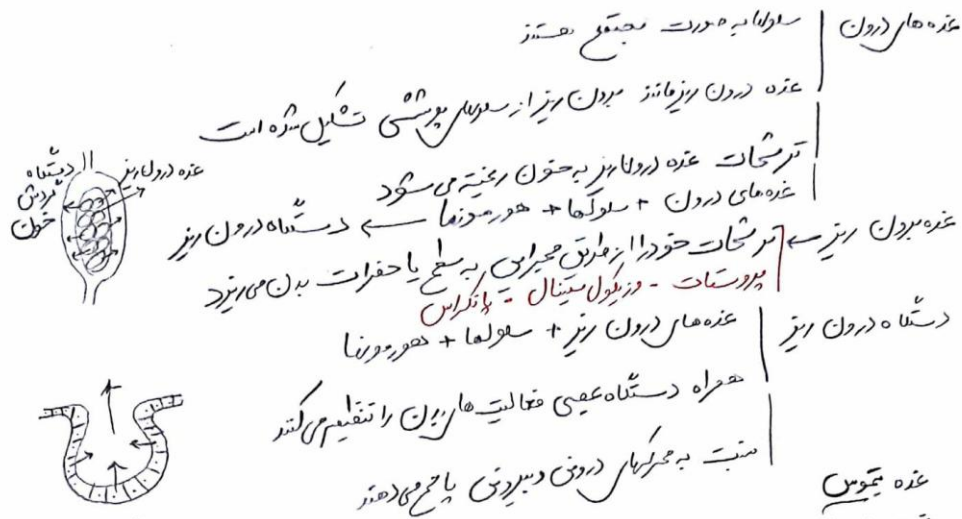 غده های درون | سلولها به صورت مجتمع هستند
غده درون ریز مانند برون ریز از سلولهای پوششی تشکیل شده است
ترشحات غده درون ریز به خون ریخته می شود
غده‌های درون + سلولها + هورمونها ← دستگاه درون ریز
دستگاه گردش خون
غده درون ریز
غده برون ریز ← ترشحات خود را از طریق مجرایی به سطح یا حفرات بدن می‌ریزد
پروستات - وزیکول سمینال - پانکراس
دستگاه درون ریز | غده‌های درون ریز + سلولها + هورمونها
همراه دستگاه عصبی فعالیت های بدن را تنظیم می کنند
نسبت به محرکهای درونی و بیرونی پاسخ می دهند
غده تیموس